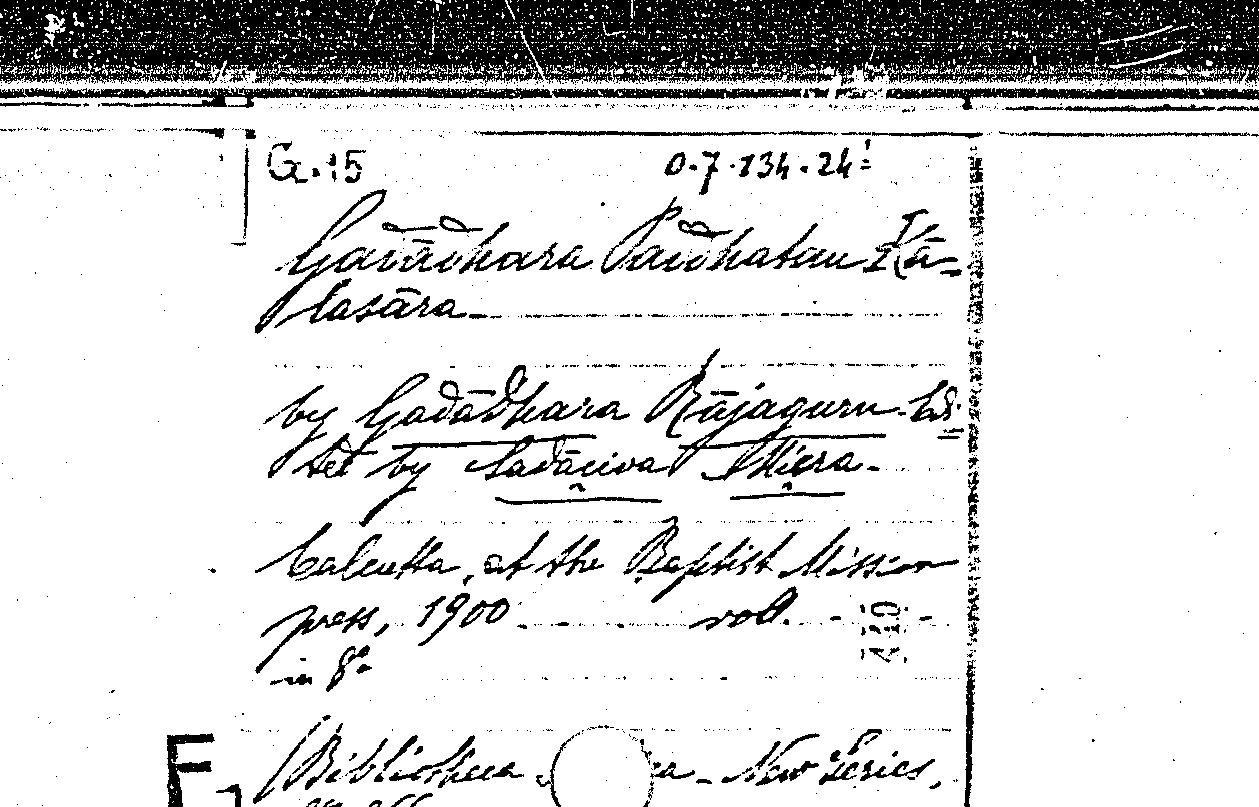 G.15 0.7.134.24
Gadādhara Paddhatau Kā-
lasāra
by Gadādhara Rājaguru. Edi
ted by Sadāçiva Miçra.
Calcutta, at the Baptist Mission
press, 1900 vol.
in 8°
(Bibliotheca New Series,